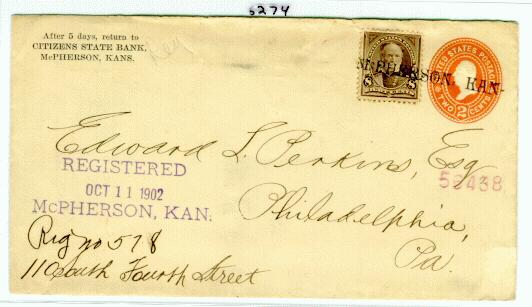 5274
After 5 days, return to
CITIZENS STATE BANK,
McPHERSON, KANS.
Reg
McPHERSON, KAN.
8
UNITED STATES POSTAGE
TWO 2 CENTS
Edward L. Perkins, Esq.
REGISTERED
OCT 11 1902
McPHERSON, KAN.
Philadelphia,
Pa.
Reg no 578
110 South Fourth Street